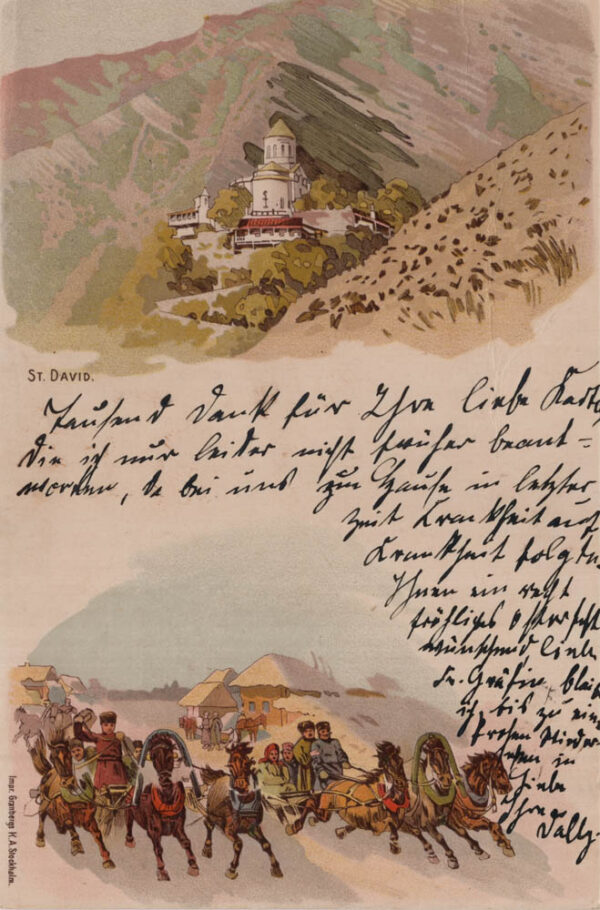 ST. DAVID.
Tausend Dank für Ihre liebe Karte,
die ich nur leider nicht früher beant-
worten, da bei uns zu Hause in letzter
Zeit Krankheit auf
Krankheit folgte.
Ihnen ein recht
fröhliges Osterfest
wünschend liebe
Fr. Gräfin bleibe
ich bis zu ein
frohen Wieder-
sehen in
Liebe
Ihre
Impr. Granbergs K. A. Stockholm.